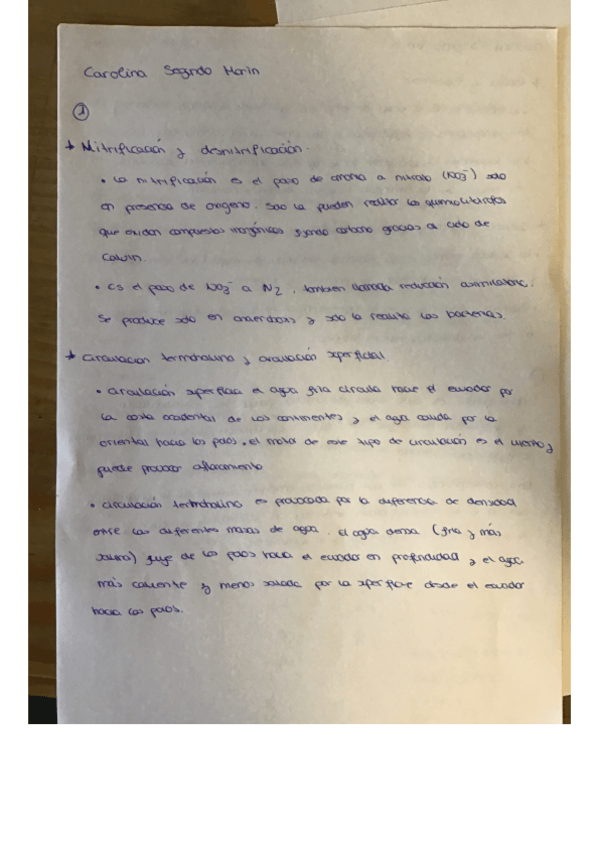 Carolina Segndo Marin
①
→ Nitrificación y desnitrificación.
• La nitrificación es el paso de amonio a nitrato (NO3-) solo
en presencia de oxígeno. Solo la pueden realizar los quimiolitotrofos
que oxidan compuestos inorgánicos fijando carbono gracias al ciclo de
Calvin.
• Es el paso de NO3- a N2, tambien llamada reducción asimilatoria.
Se produce solo en anaerobiosis y solo la realiza las bacterias.
→ Circulacion termohalina y circulación superficial.
• Circulación superficial el agua fria circula hacia el ecuador por
la costa occidental de los continentes y el agua calida por la
oriental hacia los polos, el motor de este tipo de circulación es el viento y
puede provocar afloramiento
• Circulación termohalina es provocada por la diferencia de densidad
entre las diferentes masas de agua. El agua densa (fria y más
salina) fluye de los polos hacia el ecuador en profundidad y el agua
más caliente y menos salada por la superficie desde el ecuador
hacia los polos.